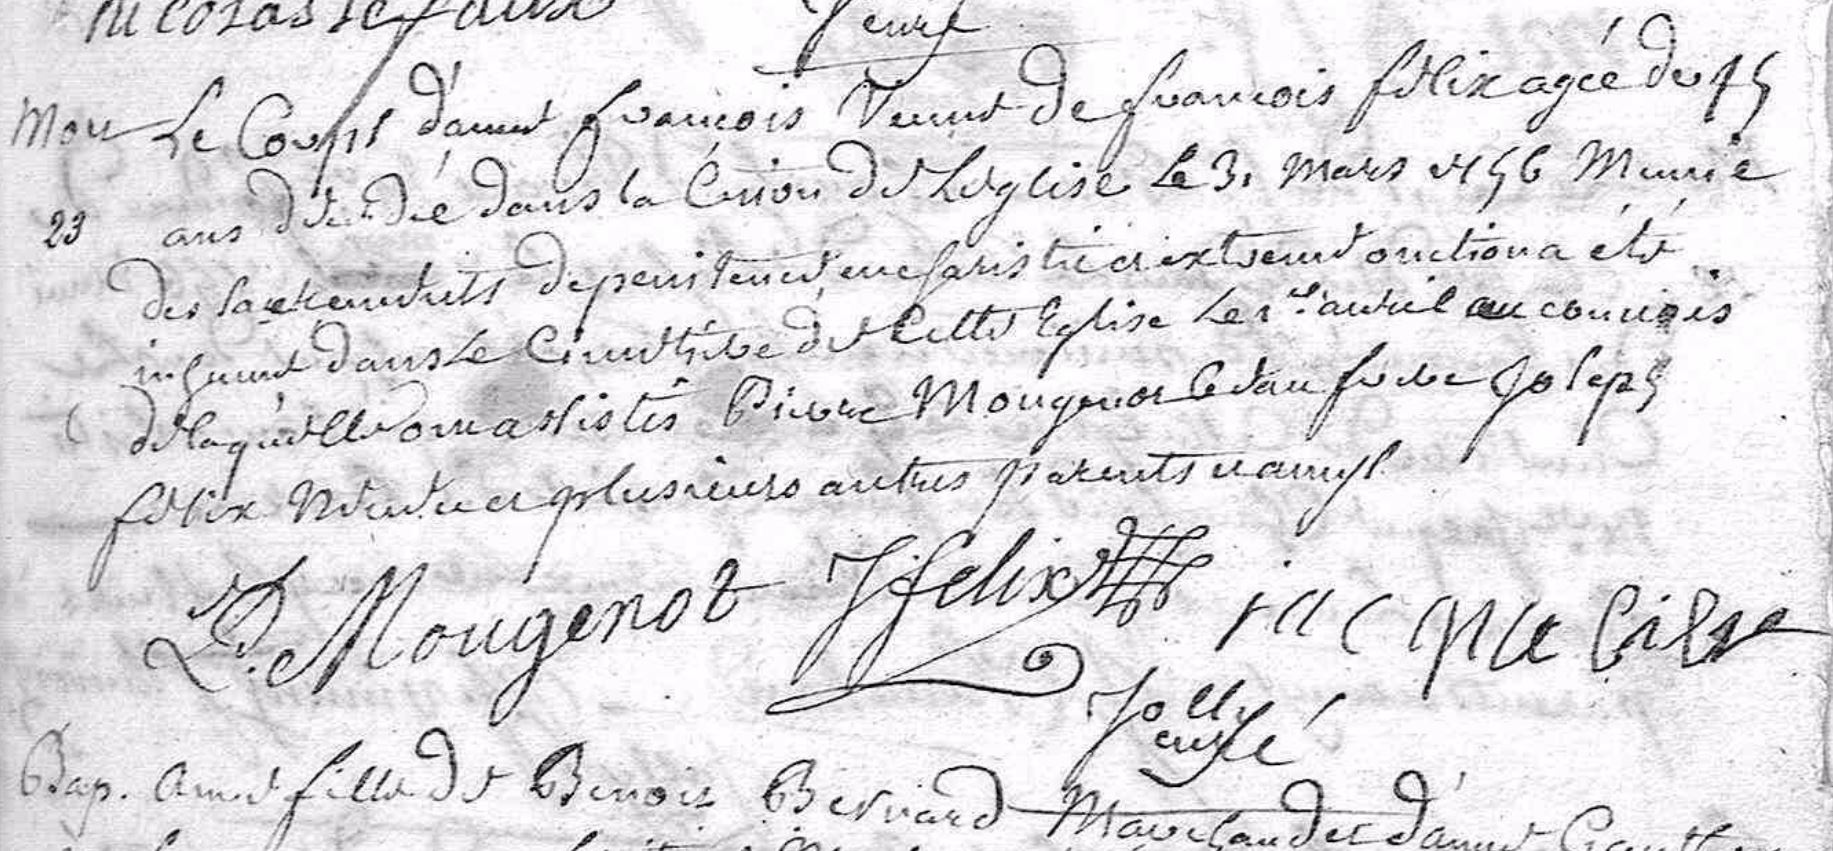 nicolas lefaux
Curé
Mort Le Corps d'anne françois veuve de françois félix agée de 75
23 ans décédée dans la Union de Leglise Le 31 mars 1756 Munie
des sacrements de penitence eucharistie et extreme onction a été
inhumé dans Le Cimetière de Cette Eglise Le 1er avril au convois
de laquelle ont assistés Pierre Mougenot beau frere Joseph
félix Neveu et plusieurs autres parents et amys
P. Mougenot J felix jacque
Jolly
curé
Bap. Anne fille de Benoit Bernard Marchand et d'anne